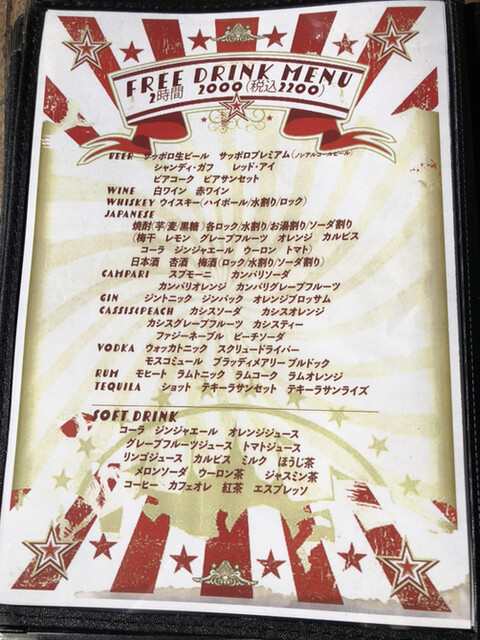 FREE DRINK MENU
2時間 2000(税込2200)
BEER サッポロ生ビール サッポロプレミアム(ノンアルコールビール)
シャンディ・ガフ レッド・アイ
ビアコーク ビアサンセット
WINE 白ワイン 赤ワイン
WHISKEY ウイスキー(ハイボール/水割り/ロック)
JAPANESE
焼酎(芋/麦/黒糖)各ロック/水割り/お湯割り/ソーダ割り
(梅干 レモン グレープフルーツ オレンジ カルピス
コーラ ジンジャエール ウーロン トマト)
日本酒 杏酒 梅酒(ロック/水割り/ソーダ割り)
CAMPARI スプモーニ カンパリソーダ
カンパリオレンジ カンパリグレープフルーツ
GIN ジントニック ジンバック オレンジブロッサム
CASSIS&PEACH カシスソーダ カシスオレンジ
カシスグレープフルーツ カシスティー
ファジーネーブル ピーチソーダ
VODKA ウォッカトニック スクリュードライバー
モスコミュール ブラッディメアリー ブルドック
RUM モヒート ラムトニック ラムコーク ラムオレンジ
TEQUILA ショット テキーラサンセット テキーラサンライズ
SOFT DRINK
コーラ ジンジャエール オレンジジュース
グレープフルーツジュース トマトジュース
リンゴジュース カルピス ミルク ほうじ茶
メロンソーダ ウーロン茶 ジャスミン茶
コーヒー カフェオレ 紅茶 エスプレッソ